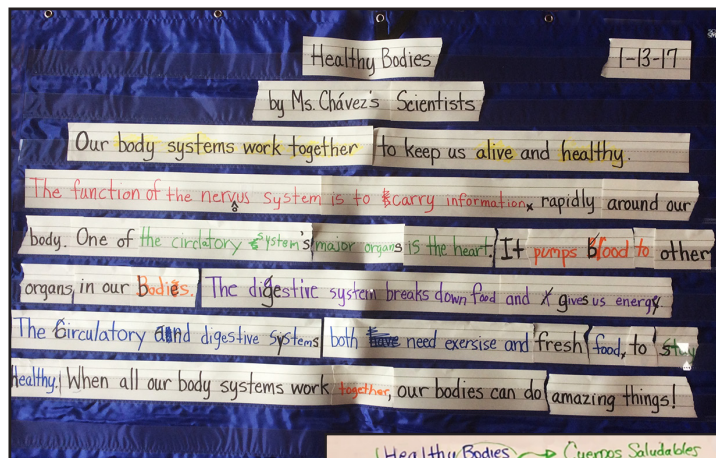 Healthy Bodies 1-13-17
by Ms. Chávez's Scientists
Our body systems work together to keep us alive and healthy.
The function of the nervous system is to carry information rapidly around our
body. One of the circlatory system's major organs is the heart. It pumps Blood to other
organs, in our Bodies. The digestive system breaks down food and gives us energy.
The Circulatory and digestive systems both need exersise and fresh food, to stay
Healthy. When all our body systems work together, our bodies can do amazing things!
Healthy Bodies → Cuerpos Saludables